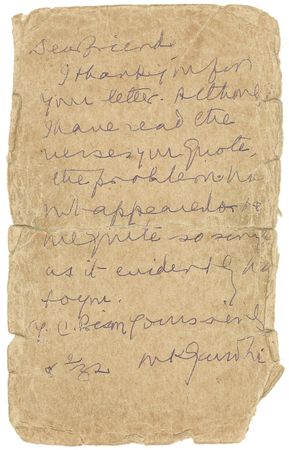 Dear friend
I thank you for
your letter. Although
I have read the
verses you quote,
the problem has
not appeared to
me quite so simple
as it evidently has
to you.
Yours sincly
MKGandhi